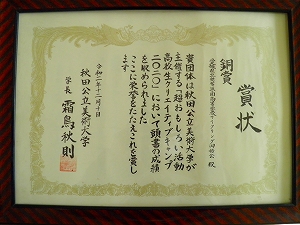 賞状
銅賞
貴団体は秋田公立美術大学が
主催する「超おもしろい活動
高校生クリエイティブキャンプ
二〇二〇」において頭書の成績
を収められました
ここに栄誉をたたえこれを賞し
ます
令和二年十二月十日
秋田公立美術大学
学長 霜鳥秋則